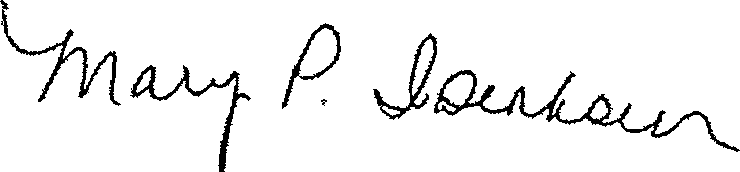 Mary P. Isenhour